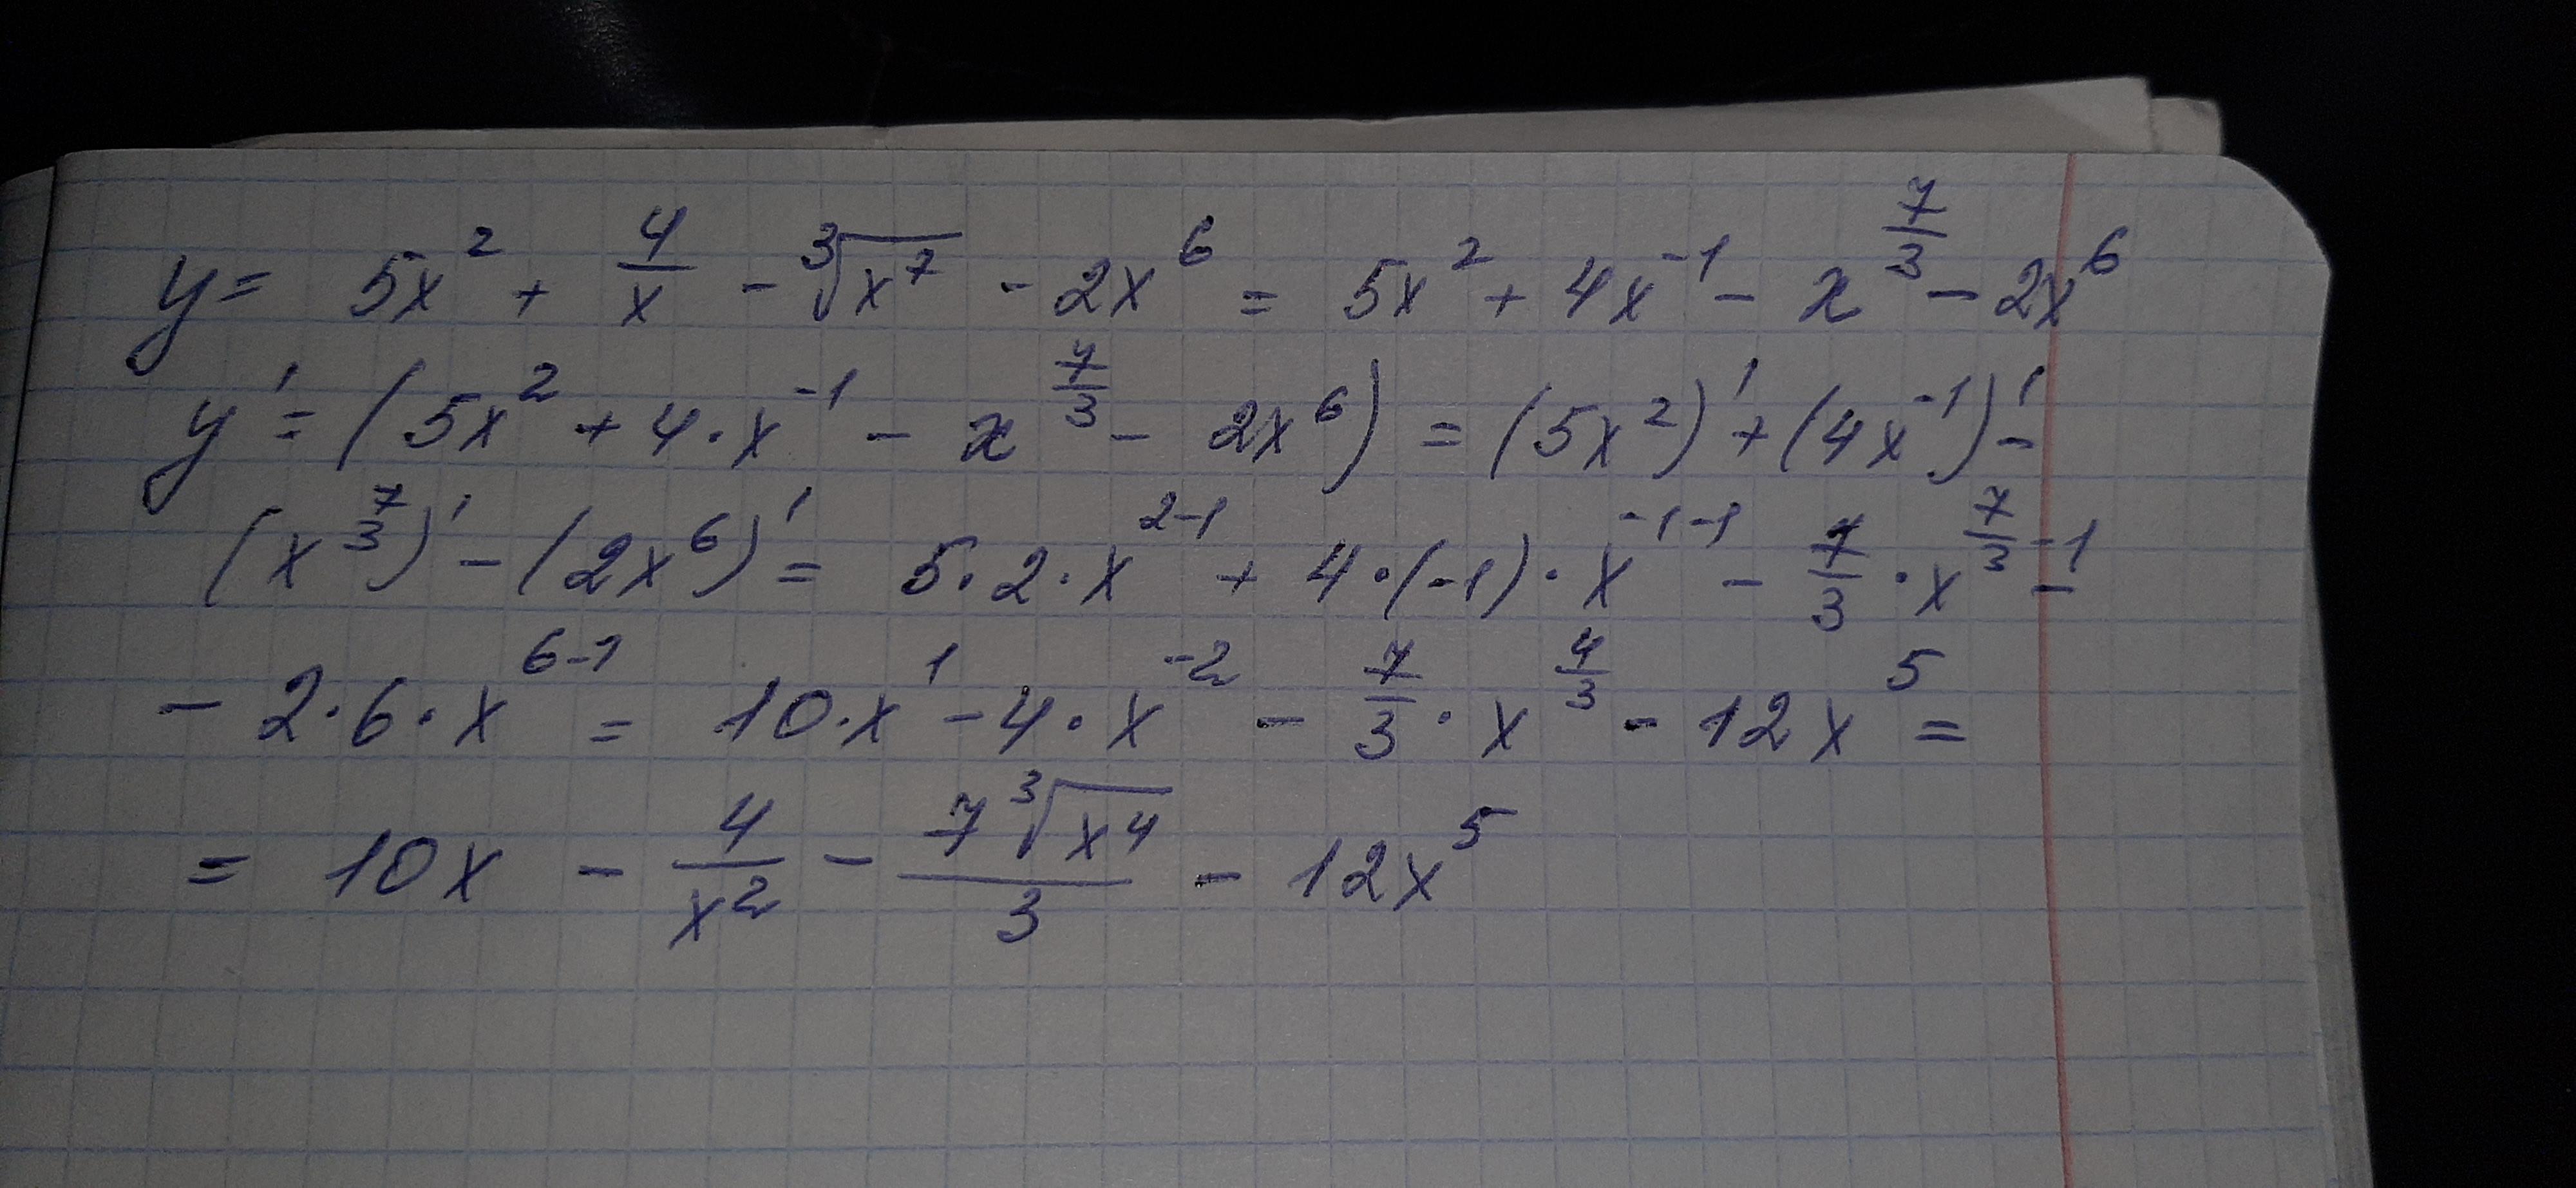 y = 5x² + 4/x - ∛(x⁷) - 2x⁶ = 5x² + 4x⁻¹ - x^(7/3) - 2x⁶
y' = (5x² + 4·x⁻¹ - x^(7/3) - 2x⁶) = (5x²)' + (4x⁻¹)' -
(x^(7/3))' - (2x⁶)' = 5·2·x^(2-1) + 4·(-1)·x^(-1-1) - 7/3·x^(7/3-1) -
- 2·6·x^(6-1) = 10·x¹ - 4·x⁻² - 7/3·x^(4/3) - 12x⁵ =
= 10x - 4/x² - 7∛(x⁴)/3 - 12x⁵